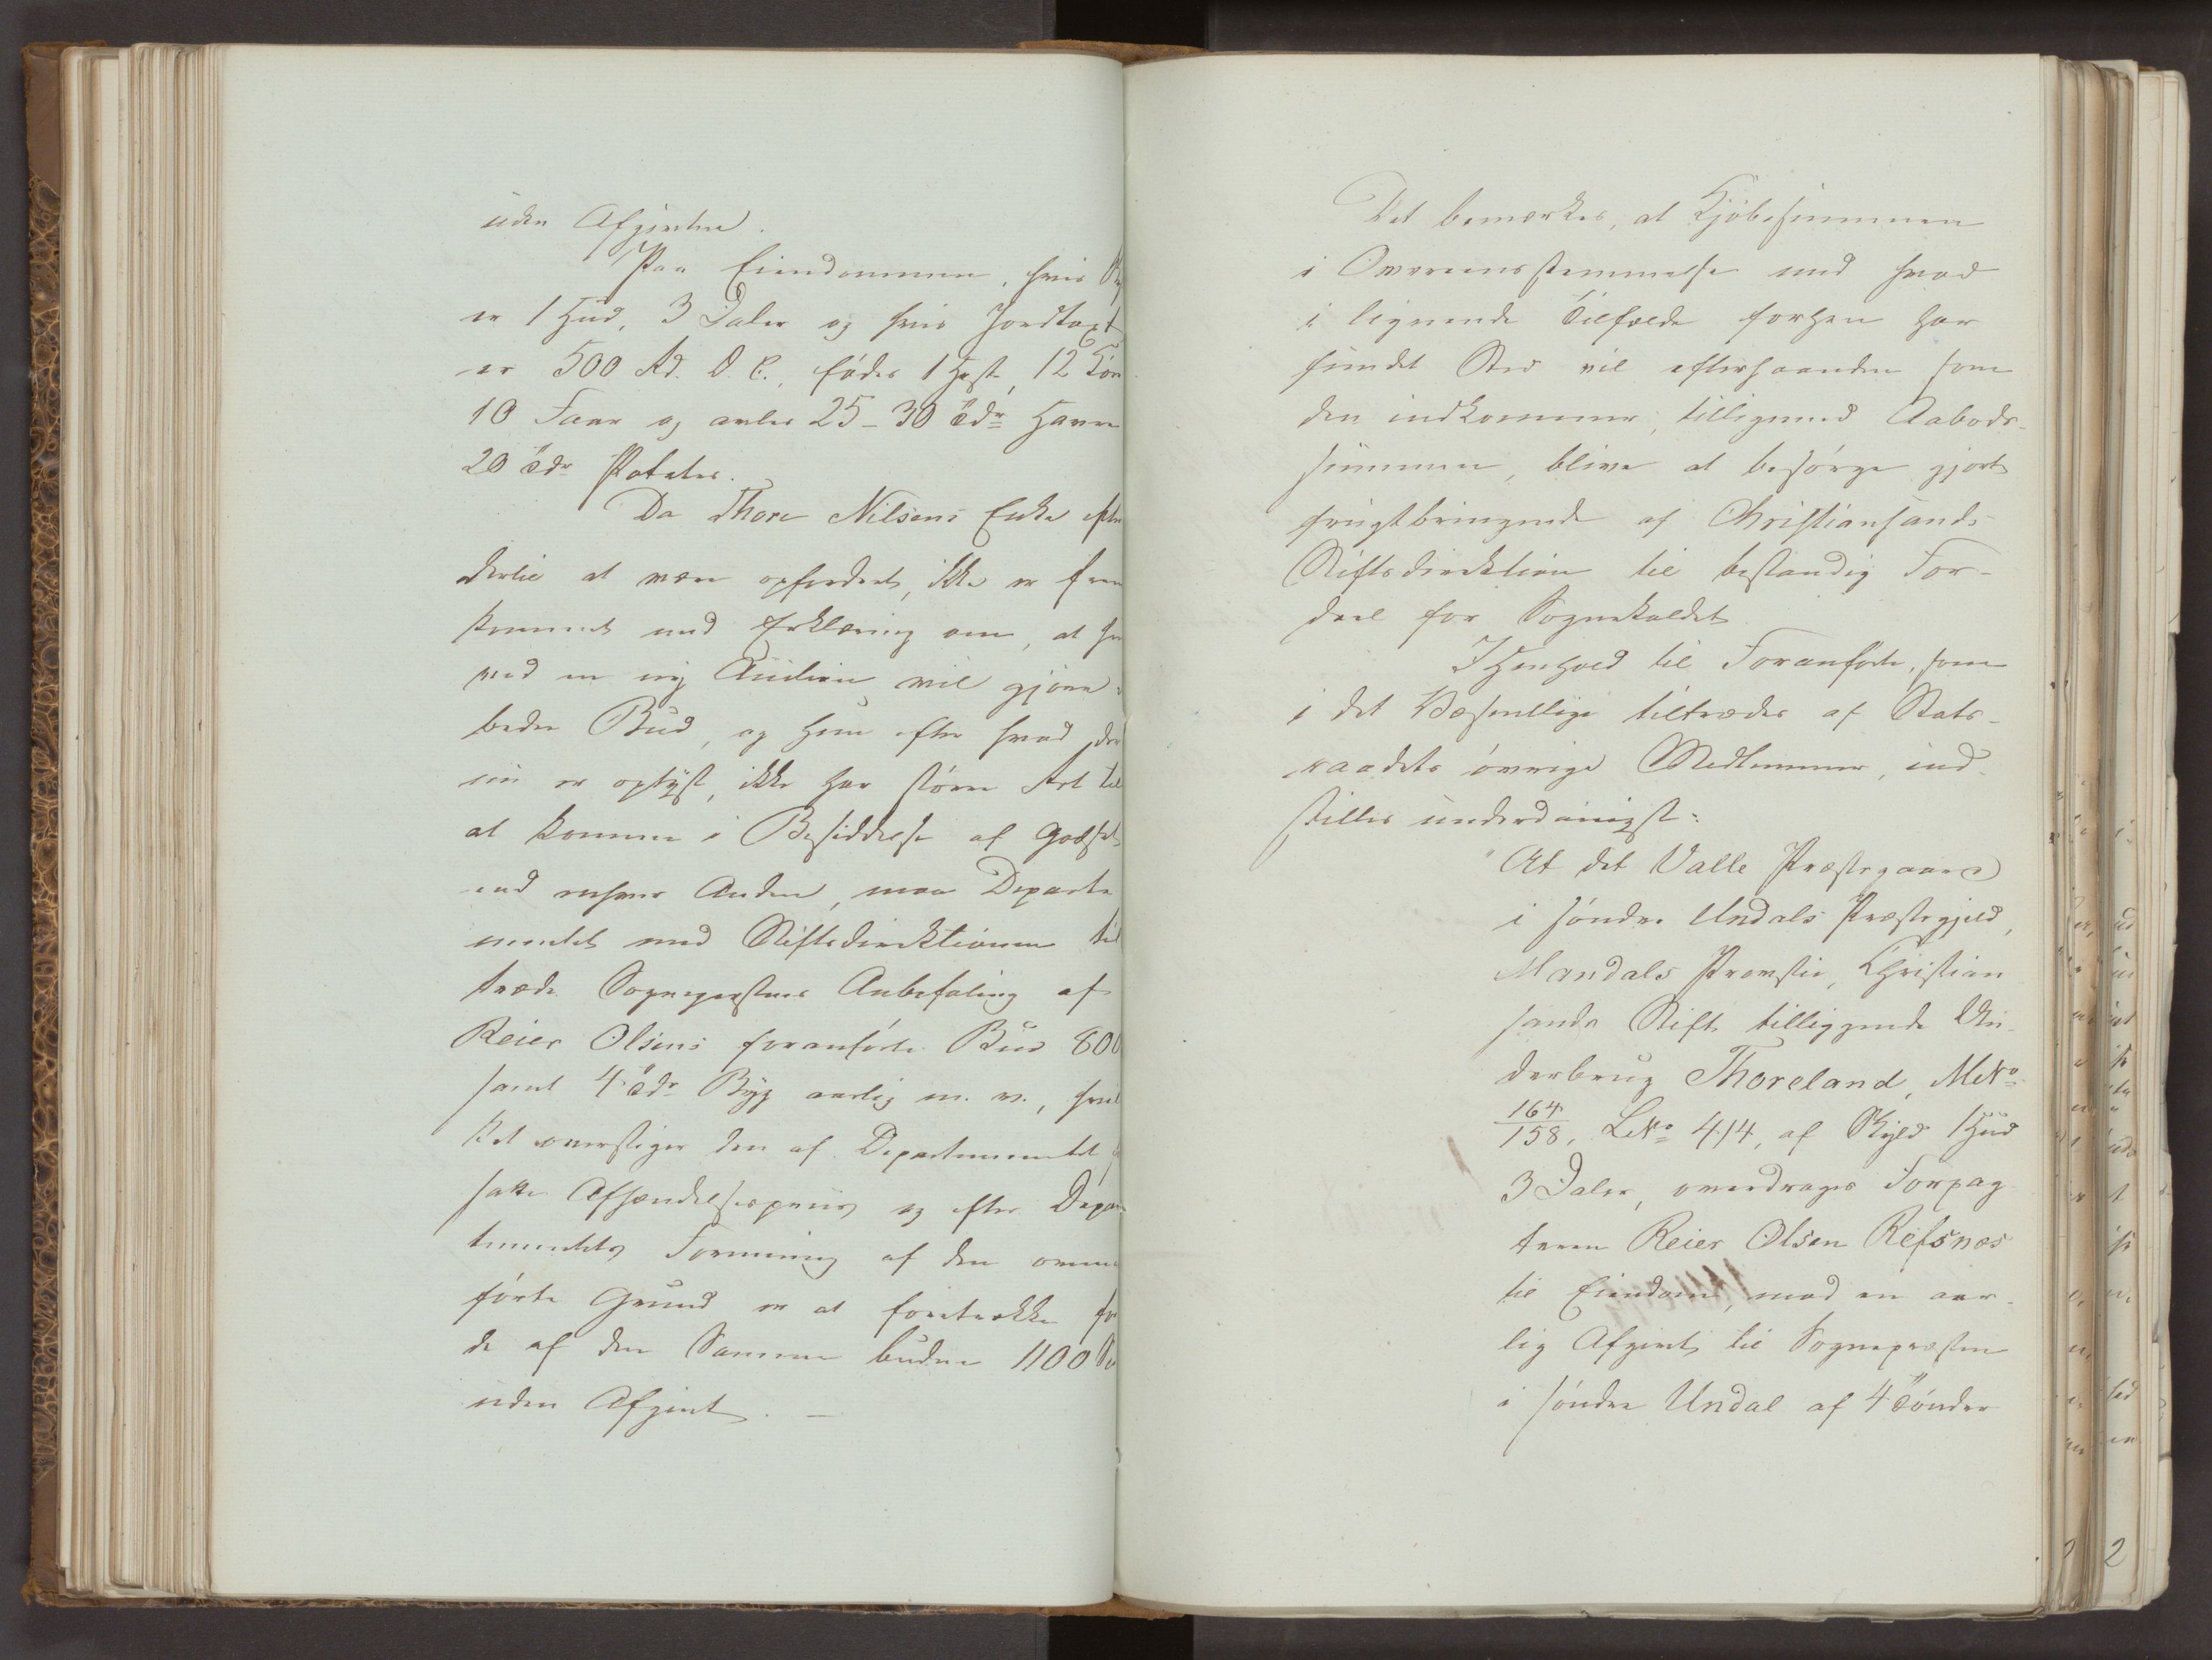 uden Afgivten.
Paa Eiendommen, hvis
er 1 Hud, 3 Daler og hvis Jordtaxt
er 500 Rd. S. C., födes 1 Hest, 12 Kör
10 Faar og avles 25-30 Tdr Havre
20 Tdr Potetes.
Da Thore Nilsens Enke efter
dertil at være opfordret, ikke er frem
kommet med Erklæring om, at hun
ved en ny Auction vil gjöre
bedre Bud, og hun efter hvad der
nu er oplyst, ikke har större Ret til
at komme i Besiddelse af Godset
end enhver Anden, maa Departe
mentet med Stiftsdirektionen til
træde Sognepræstens Anbefaling af
Reier Olsens foranförte Bud 800
samt 4 Tdr Byg aarlig m. v., hvil
ket overstiger den af Departementet
satte Afhændelsespriis og efter Depar
tementets Formening af den ovenan
förte Grund er at foretrække for
de af den Samme budne 1100 Sp
uden Afgivt. —
Det bemærkes, at Kjöbesummen
i Overeensstemmelse med hvad
i lignende Tilfælde forhen har
fundet Sted vil efterhaanden som
den indkommer, tilligemed Aabods-
summen, blive at besörge gjort
frugtbringende af Christiansands
Stiftsdirektion til bestandig For-
deel for Sognekaldet
I Henhold til Foranförte, som
i det Væsentlige tiltrædes af Stats-
raadets övrige Medlemmer, ind-
stilles underdanigst:
"At det Valle Præstegaard
i söndre Undals Præstegjeld,
Mandals Provstie, Christian
sands Stift tilliggende Un-
derbrug Thoreland, MNo
164/158, LNo 414, af Skyld 1 Hud
3 Daler, overdrages Forpag
teren Reier Olsen Refsnæs
til Eiendom, mod en aar-
lig Afgivt til Sognepræsten
i söndre Undal af 4 Tönder
2